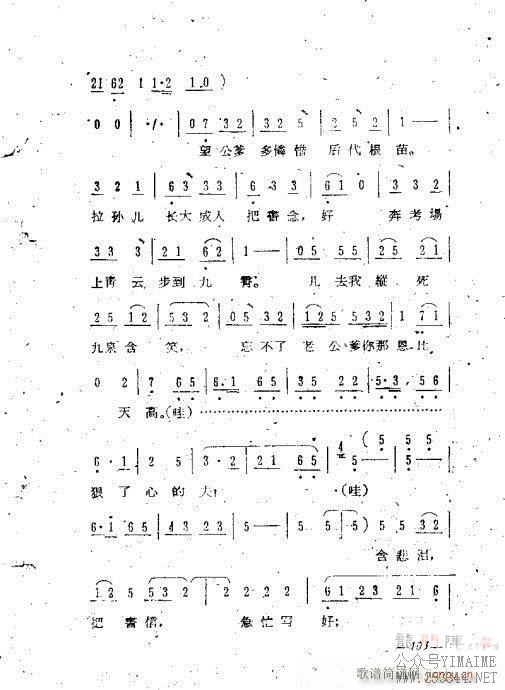 21 62 1 1·2 1 0 )
0 0 | ·/· | 0 7 3 2 | 3 2 5 | 2 5 2 | 1 — |
望公爹 多憐惜 后代根苗。
3 2 1 | 6 3 3 3 | 3 2 1 2 | 3 3 2 | 6 1 0 | 3 2 4
拉孙儿 长大成人 把書念，好 奔考場
3 3 3 | 2 1 6 2 | 1 — | 0 5 5 5 | 0 5 2 5 |
上青云步到九霄。 儿去我縱死
2 5 1 2 | 5 3 2 | 0 5 3 2 | 1 2 5 5 3 2 | 1 7 1
九泉含笑， 忘不了 老公爹你那恩比
0 2 | 7 6 5 | 6·1 6 5 | 3 5 2 1 2 | 5·3, 5 6
天高。(哇)
6·1 | 2 5 | 3·2 | 2 1 6 5 | 4 5 — | 5 5 5 5 — |
狠了心的夫， (哇)
6·1 6 5 | 4 3 2 3 | 5 — | 5 — | 5 ) | 5 5 3 2 |
含悲泪，
1 2 5 3 2 | 5 2 | 2 2 2 2 | 6 1 2 3 | 2 1 6 |
把書信， 急忙写好；
—103—
龍門陣
歌谱简谱网
公众号YIMAIME